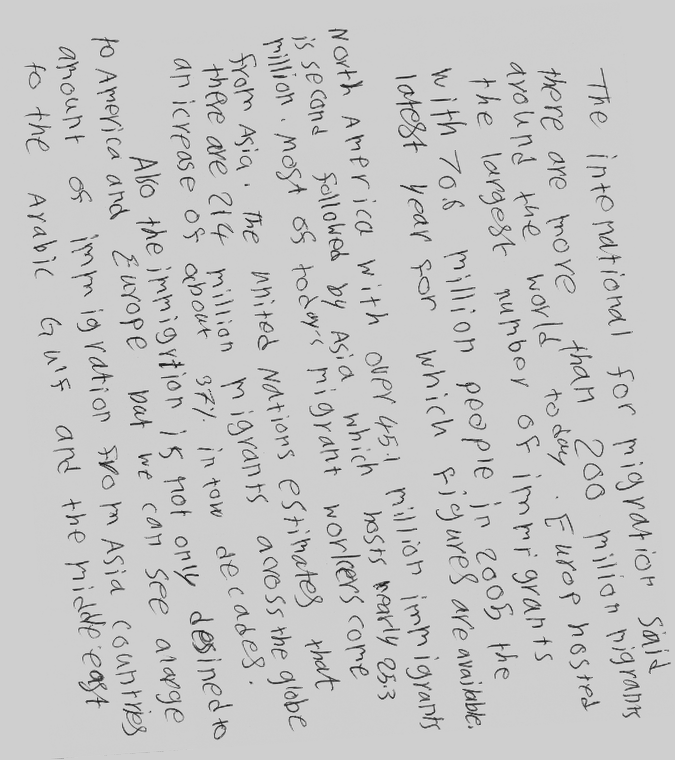 The intenational for migration said
there are more than 200 million migrants
around the world today. Europ hosted
the largest number of immigrants
with 70.6 million people in 2005 the
latest year for which figures are available.
North America with over 45.1 million immigrants
is second followed by Asia which hosts nearly 25.3
million. Most of today's migrant workers come
from Asia. The united Nations estimates that
there are 214 million migrants across the globe
an icrease of about 37% in tow decades.
Also the immigrtion is not only desined to
to America and Europe but we can see alarge
amount of immigration from Asia countries
to the Arabic Gulf and the middle east